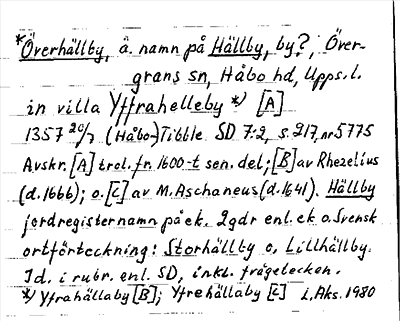 *Överhällby, ä. namn på Hällby, by?, Över-
grans sn, Håbo hd, Upps.l.
in villa Yffrahelleby *) [A]
1357 20/7 (Håbo-)Tibble SD 7:2, s. 217, nr 5775
Avskr. [A] trol. fr. 1600-t sen. del; [B] av Rhezelius
(d. 1666); o. [C] av M. Aschaneus (d. 1641). Hällby
jordregisternamn på ek. 2gdr enl. ek o. Svensk
ortförteckning: Storhällby o. Lillhällby.
Id. i rubr. enl. SD, inkl. frågetecken.
*) Yfrahällaby [B]; Yfrehällaby [C] L. Aks. 1980